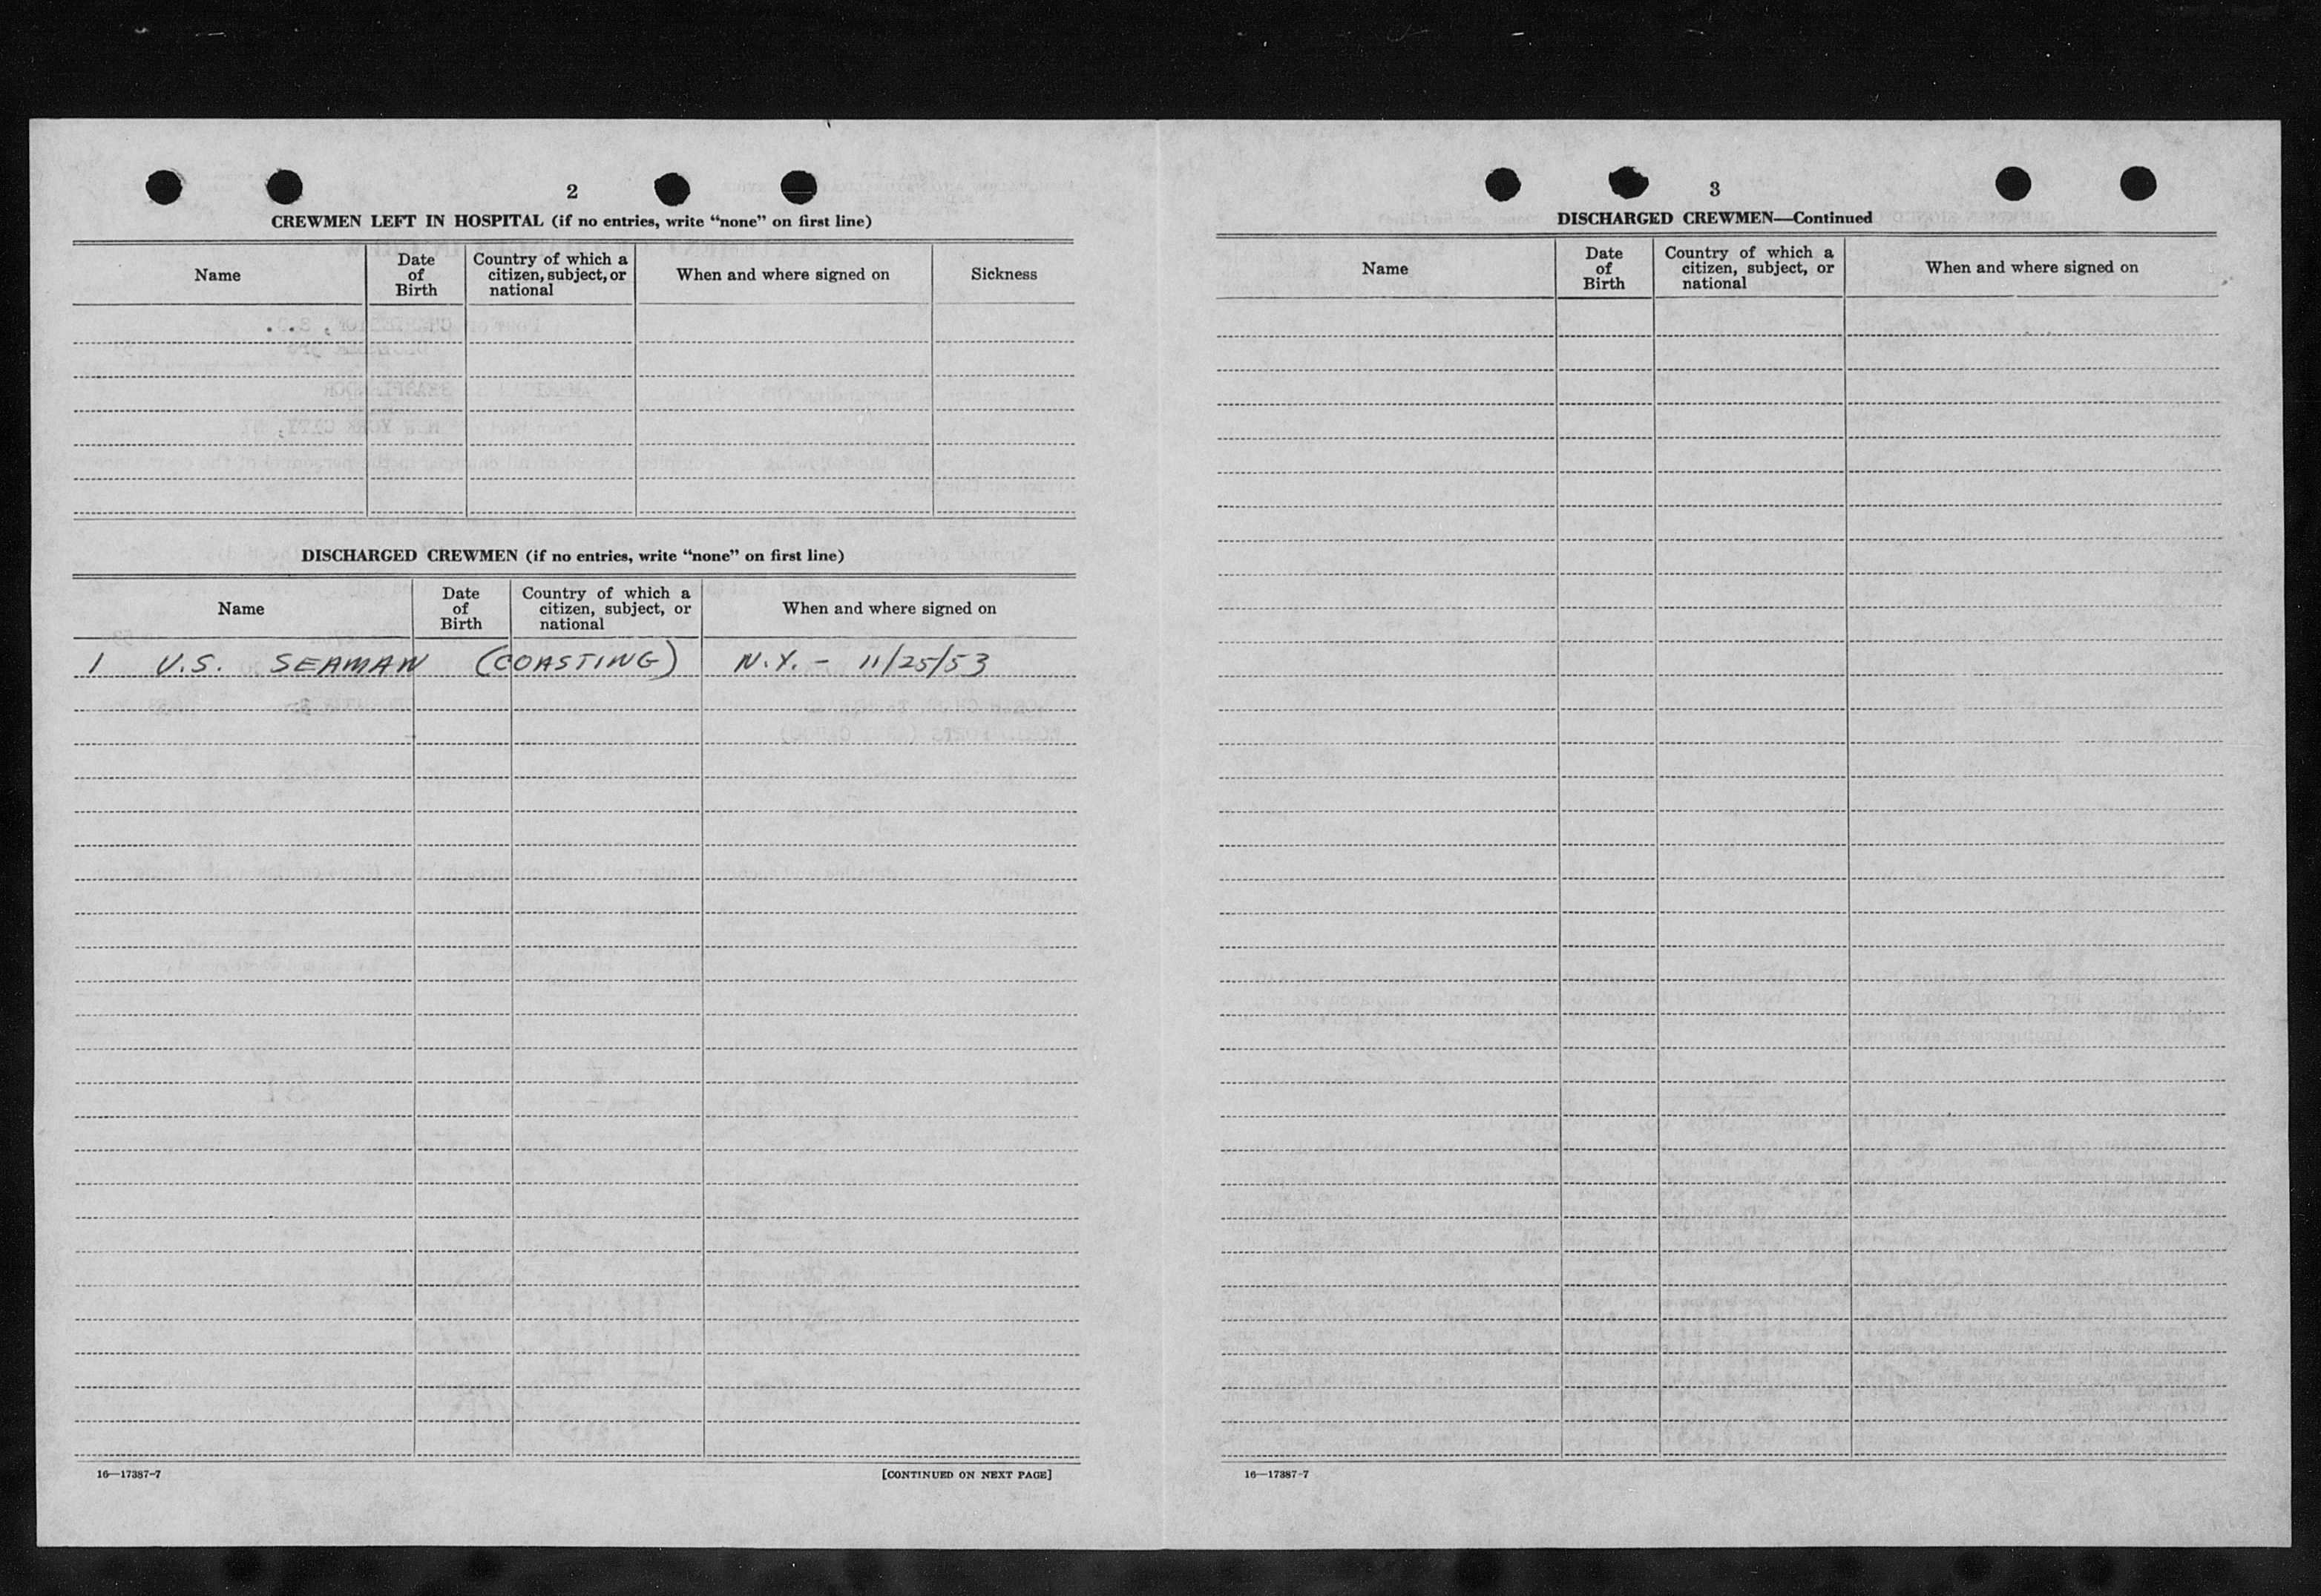 2
CREWMEN LEFT IN HOSPITAL (if no entries, write “none” on first line)
Name
Date of Birth
Country of which a citizen, subject, or national
When and where signed on
Sickness
DISCHARGED CREWMEN (if no entries, write “none” on first line)
Name
Date of Birth
Country of which a citizen, subject, or national
When and where signed on
1 U.S. SEAMAN (COASTING) N.Y. - 11/25/53
16—17387-7
[CONTINUED ON NEXT PAGE]
3
DISCHARGED CREWMEN—Continued
Name
Date of Birth
Country of which a citizen, subject, or national
When and where signed on
16—17387-7